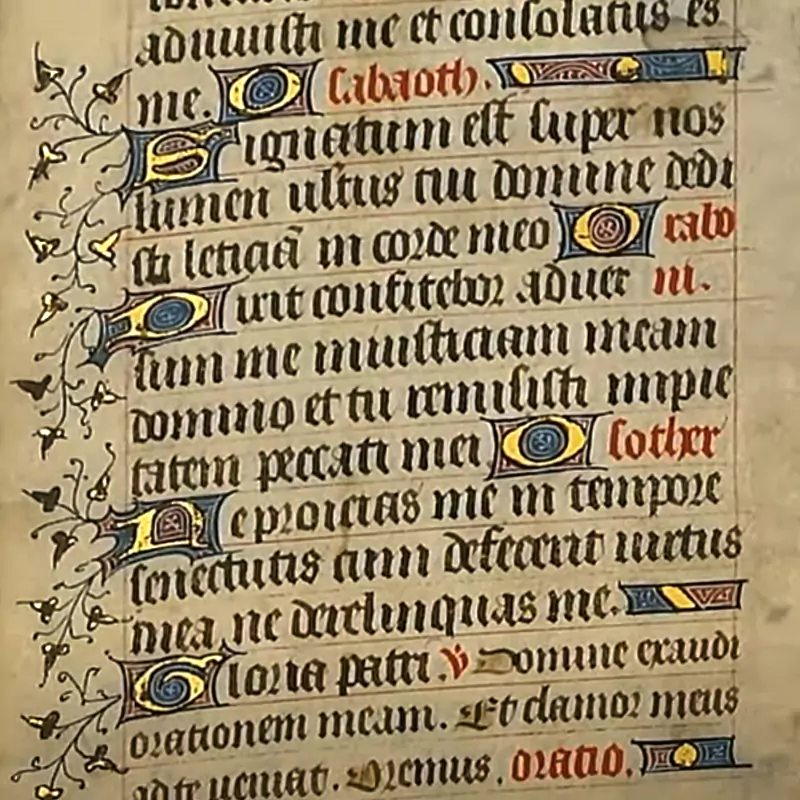 adiuuisti me et consolatus es
me. O sabaoth.
Signatum est super nos
lumen ultus tui domine dedi
sti leticiā in corde meo O rabo
Dixit confitebor aduer ni.
sum me iniusticiam meam
domino et tu remisisti impie
tatem peccati mei O sother
Ne proicias me in tempore
senectutis cum defecerit uirtus
mea, ne derelinquas me.
Gloria patri. v Domine exaudi
orationem meam. Et clamor meus
ad te ueniat. Oremus. oratio.